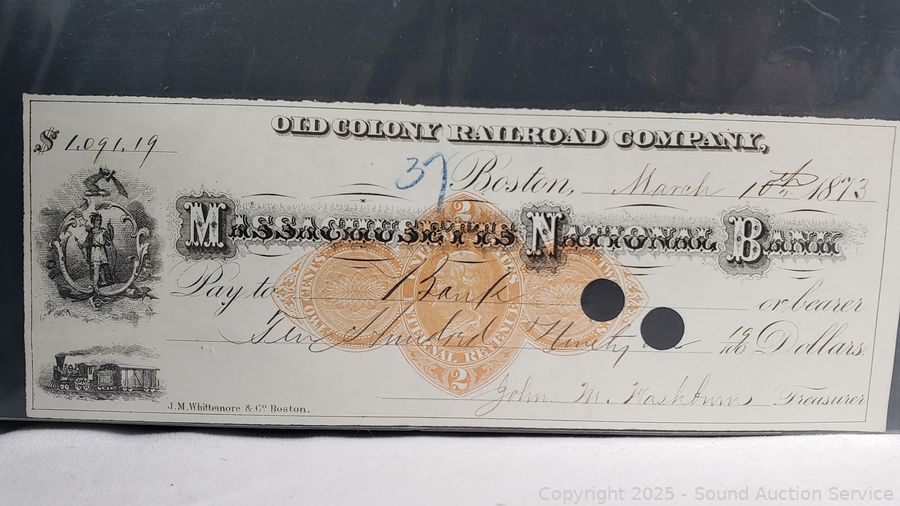 OLD COLONY RAILROAD COMPANY,
$ 1,091.19
37 Boston, March 10th 1873
MASSACHUSETTS NATIONAL BANK
Pay to Bank or bearer
Hundred Ninety 19/100 Dollars
2
NATIONAL REVENUE
2
John M. Washburn Treasurer
J.M.Whittemore & Co Boston.
Copyright © 2025 - Sound Auction Service